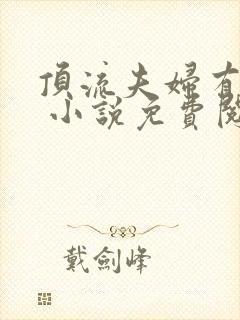 頂流夫婦有
小說免費閱
戴劍峰